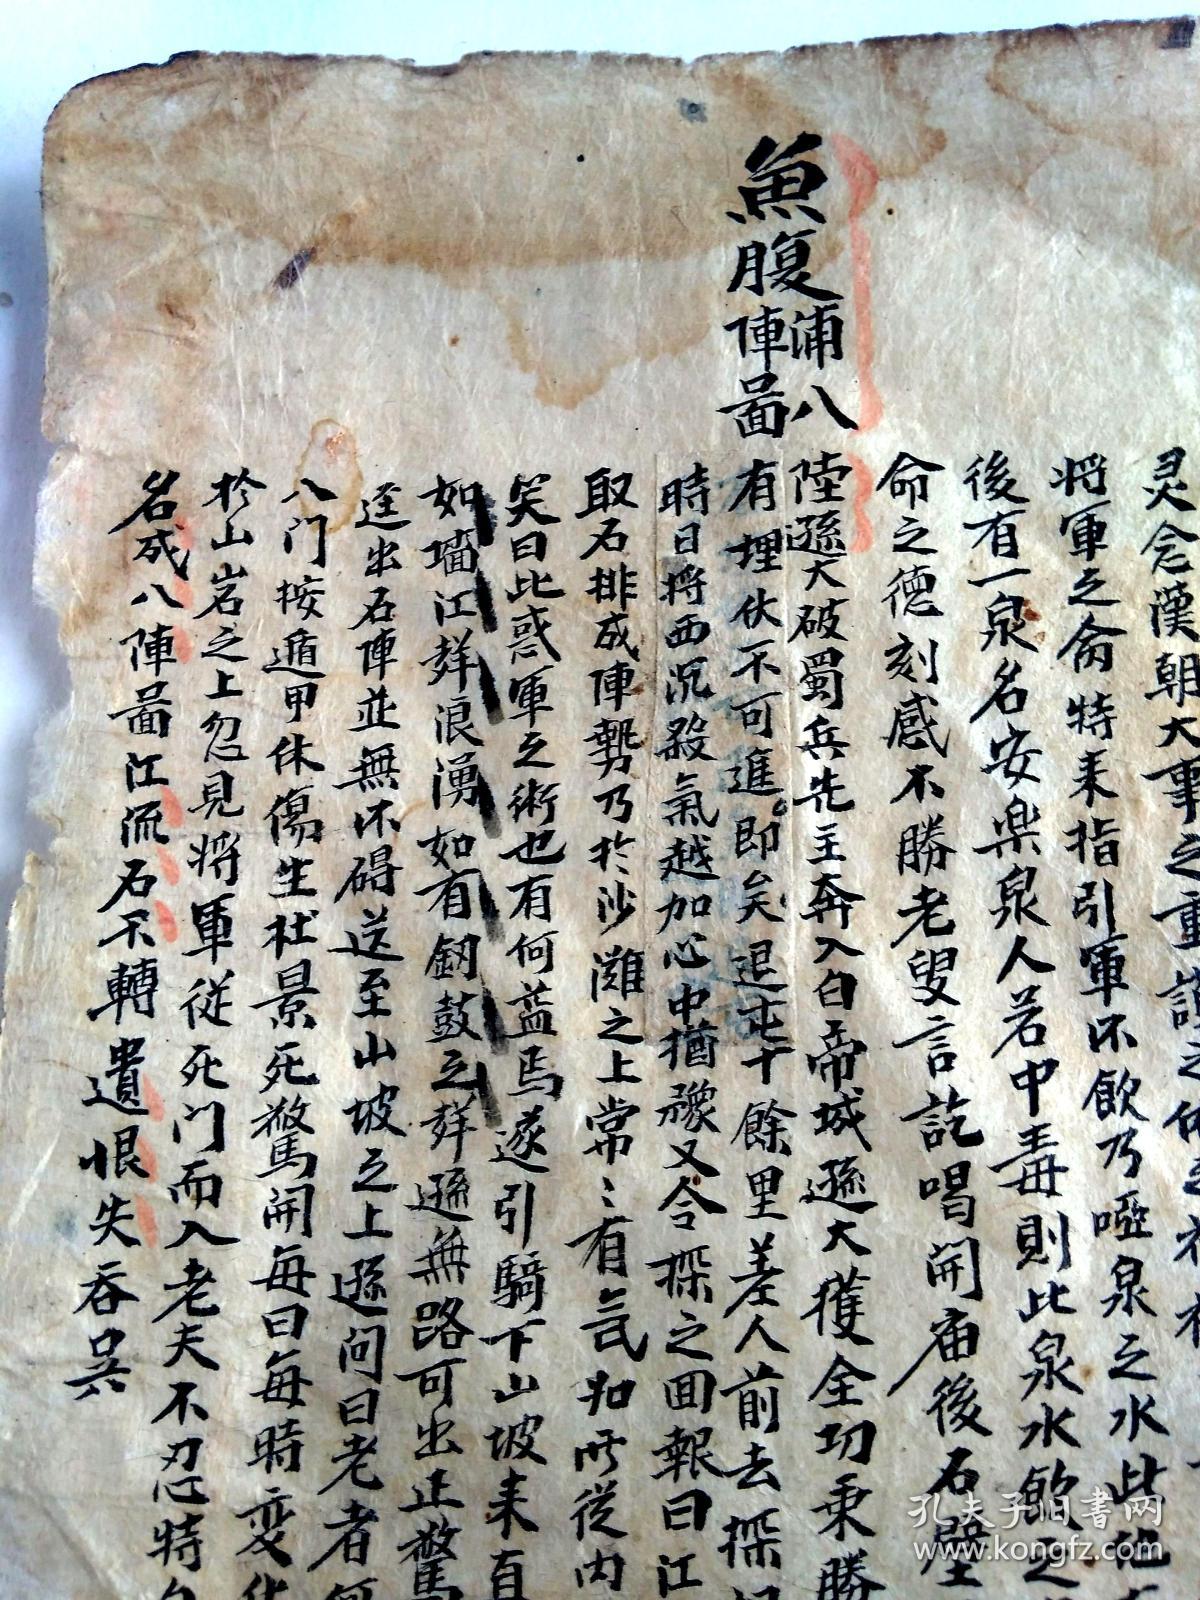 灵念漢朝大事之重
将軍之侖特来指引軍不飲乃啞泉之水此他
後有一泉名安樂泉人若中毒則此泉水飲之
命之德刻感不勝老叟言訖唱開庙後石壁
魚腹浦八
陣啚
陸遜大破蜀兵先主奔入白帝城遜大獲全功乘勝
有埋伏不可進即矣退屯十餘里差人前去探
時日将西沉殺氣越加心中猶豫又令探之回報曰江
取石排成陣勢乃於沙灘之上常〻有氣如所從内
笑曰此惑軍之術也有何益焉遂引騎下山坡来直
如墻江𢒎浪湧如有劒鼓之𢒎遜無路可出正驚
逕出石陣並無怀碍送至山坡之上遜问曰老者何
八门按遁甲休傷生杜景死驚開每日每時变化
於山岩之上忽見将軍從死门而入老夫不忍特
名成八陣啚江流石不轉遺恨失吞吴
孔夫子旧书网
www.kongfz.com